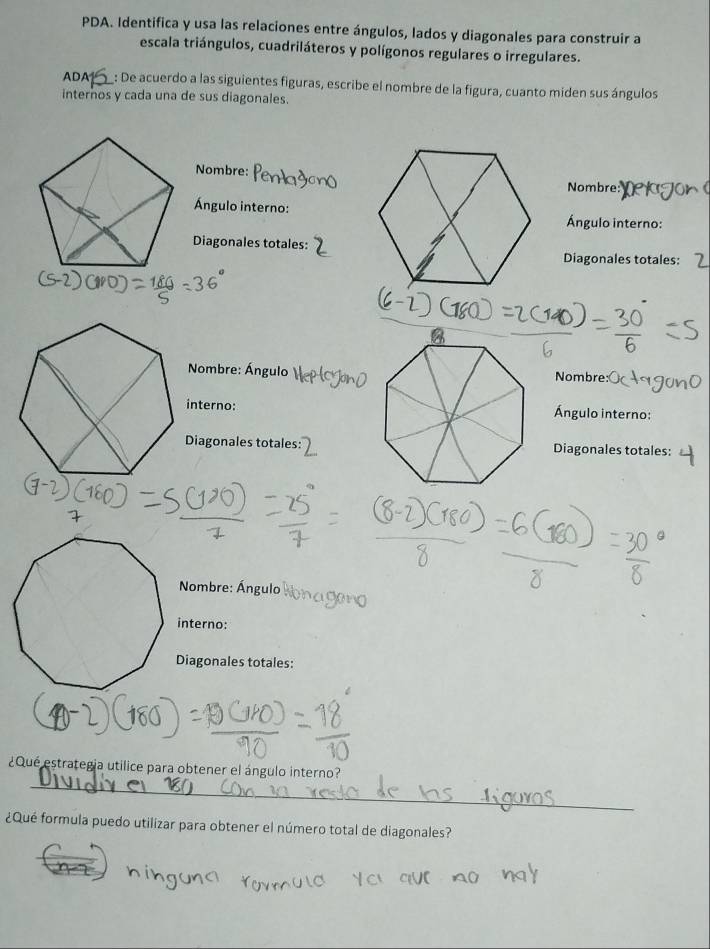 PDA. Identifica y usa las relaciones entre ángulos, lados y diagonales para construir a
escala triángulos, cuadriláteros y polígonos regulares o irregulares.
ADA 15 : De acuerdo a las siguientes figuras, escribe el nombre de la figura, cuanto miden sus ángulos
internos y cada una de sus diagonales.
Nombre: Pentagono
Ángulo interno:
Diagonales totales: 2
(5-2)(180) = 180/5 = 36°
Nombre:
Ángulo interno:
Diagonales totales: 2
(6-2)(180) = 2(180)/6 = 30°/6 = 5
Nombre: Ángulo Heptagono
interno:
Diagonales totales: 2
(7-2)(180)/7 = 5(180)/7 = 25°/7 =
Nombre: Octagono
Ángulo interno:
Diagonales totales: 4
(8-2)(180)/8 = 6(180)/8 = 30°/8
Nombre: Ángulo
interno:
Diagonales totales:
-2)(180) = = 18°/10
¿Qué estrategia utilice para obtener el ángulo interno?
Dividir el 180 con la resta de las figuras
¿Qué formula puedo utilizar para obtener el número total de diagonales?
ninguna formula ya que no hay